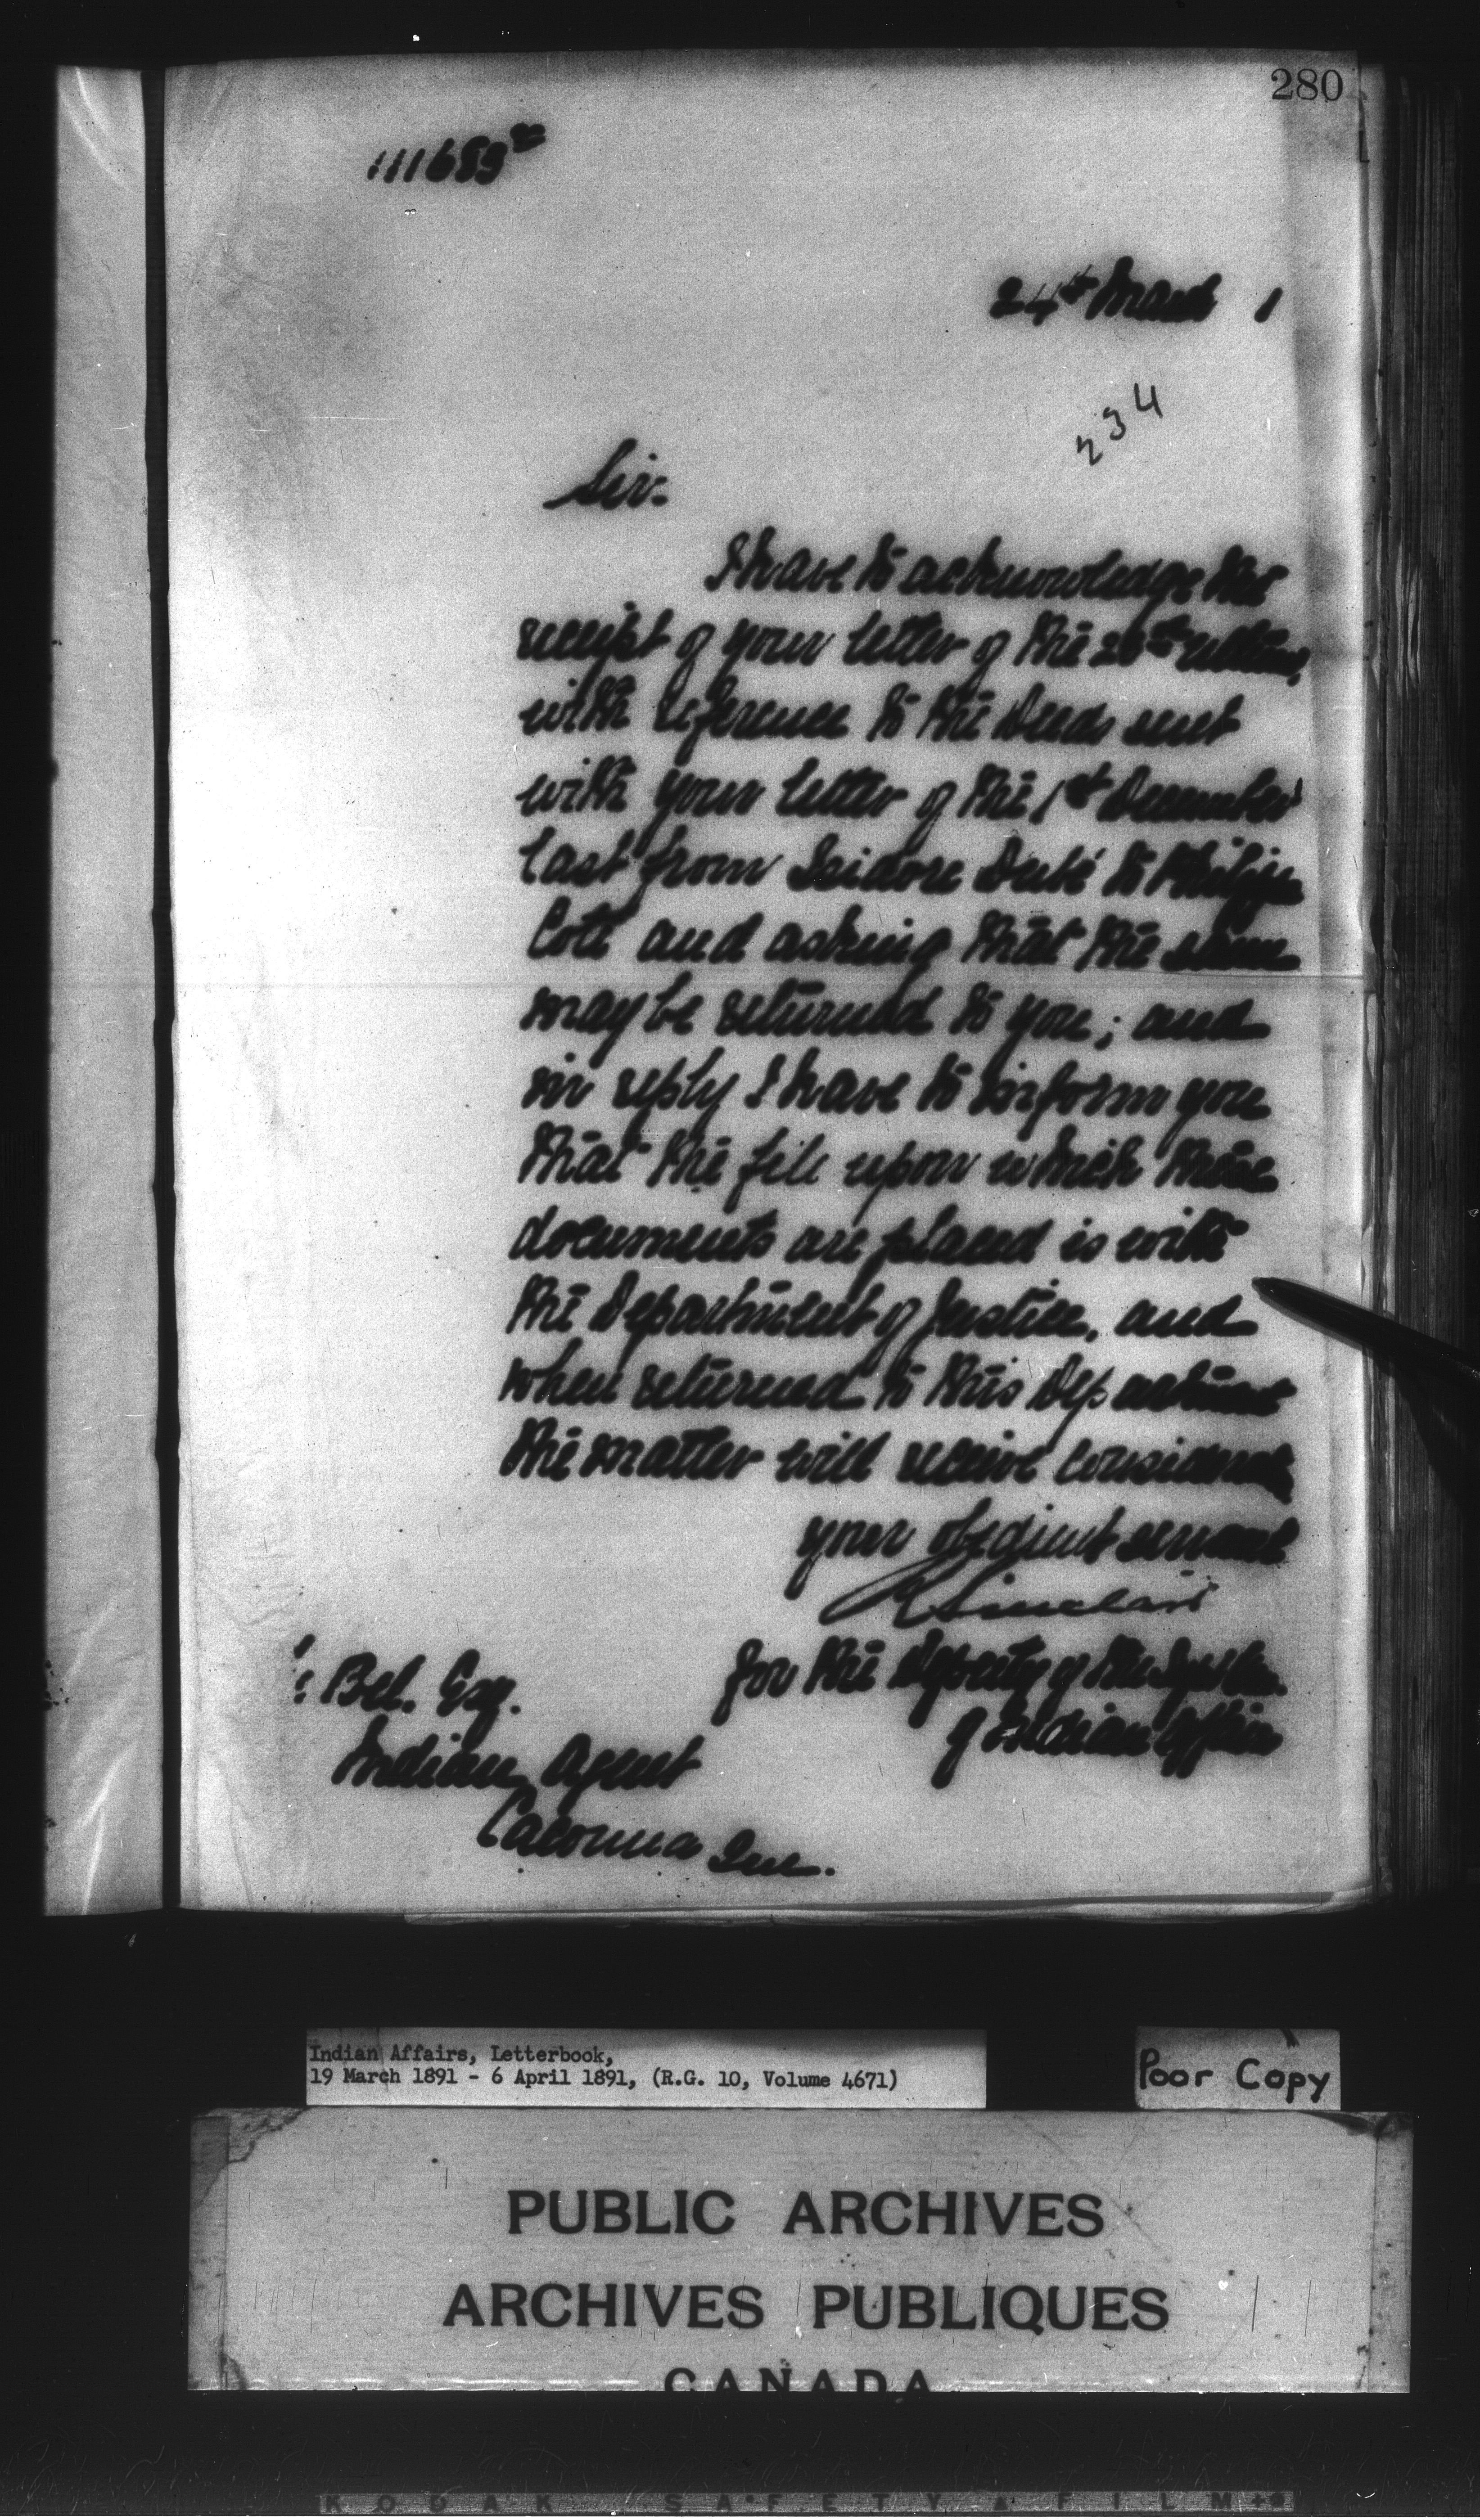 280
111689
24th March 1
234
Sir:
I have to acknowledge the
receipt of your letter of the 20th ultimo,
with reference to the Deeds sent
with your letter of the 1st December
last from Isidore Dubé to Philippe
Coté and asking that the same
may be returned to you; and
in reply I have to inform you
that the file upon which these
documents are placed is with
the Department of Justice, and
when returned to this Department
the matter will receive
your obedient servant
R Sinclair
for the Deputy of the Supt Gen.
of Indian Affairs
Bel. Esq.
Indian Agent
Cacouna Que.
Indian Affairs, Letterbook,
19 March 1891 - 6 April 1891, (R.G. 10, Volume 4671)
Poor Copy
PUBLIC ARCHIVES
ARCHIVES PUBLIQUES
CANADA
KODAK SAFETY FILM